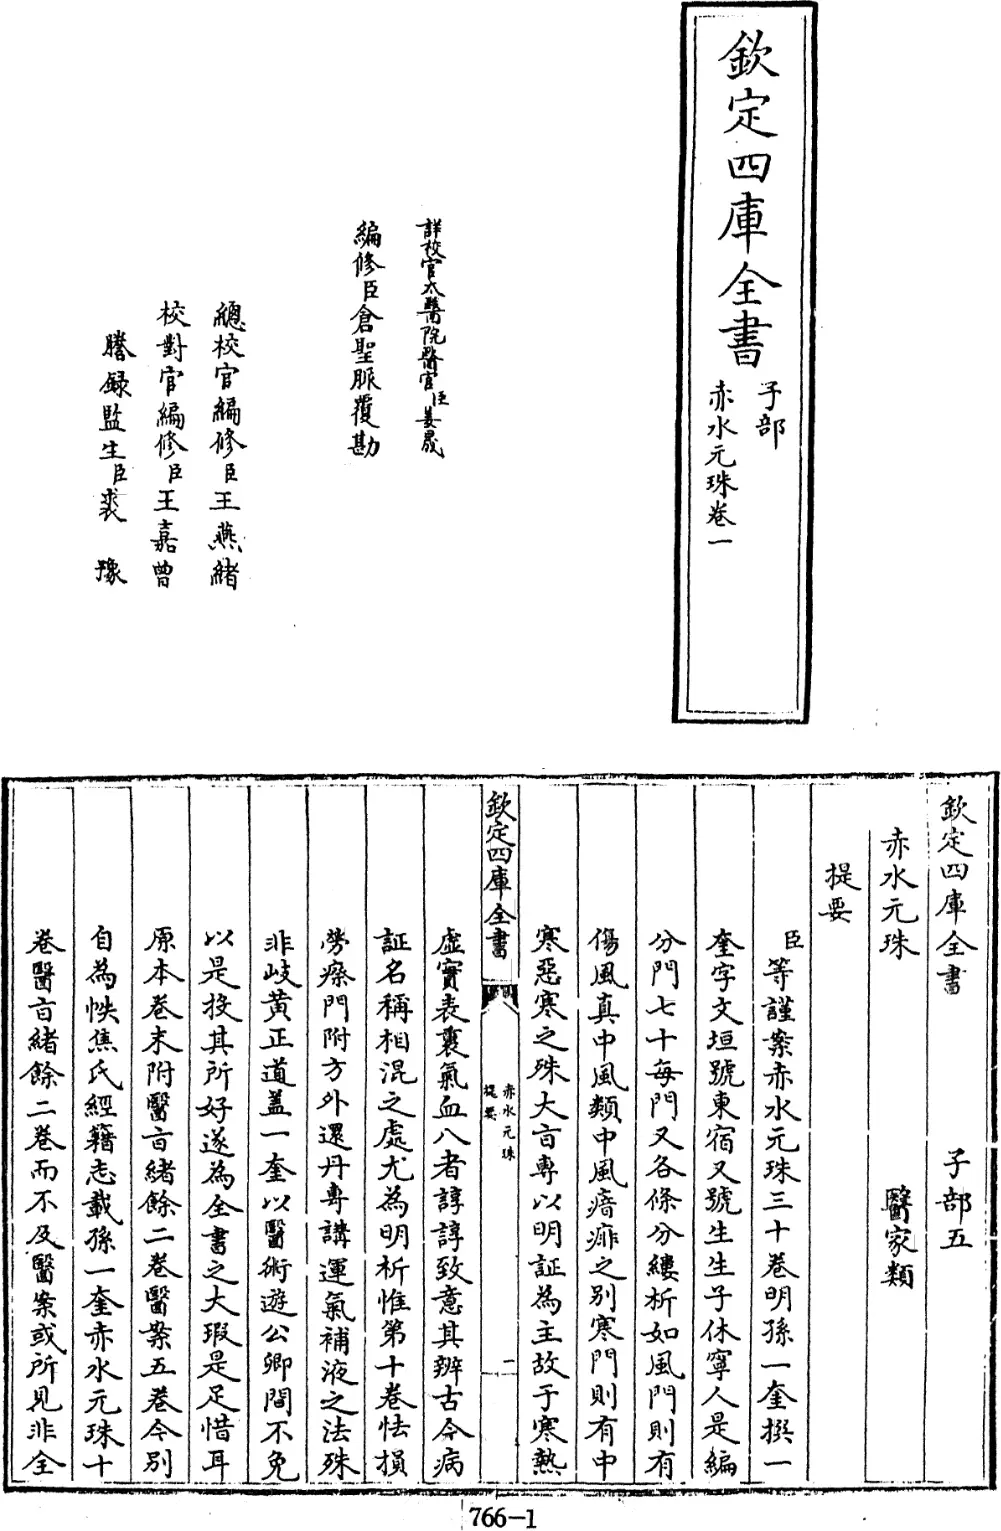 欽定四庫全書
子部
赤水元珠卷一
詳校官太醫院醫官臣姜晟
編修臣倉聖脈覆勘
總校官編修臣王燕緒
校對官編修臣王嘉曾
謄録監生臣裘豫
欽定四庫全書　子部五
赤水元珠　醫家類
提要
臣等謹案赤水元珠三十卷明孫一奎撰一
奎字文垣號東宿又號生生子休寧人是編
分門七十每門又各條分縷析如風門則有
傷風真中風類中風瘖痱之別寒門則有中
寒惡寒之殊大㫖專以明証為主故于寒熱
欽定四庫全書
赤水元珠
提要
二
虛實表裏氣血八者諄諄致意其辨古今病
証名稱相混之處尤為明析惟第十卷怯損
勞瘵門附方外還丹專講運氣補液之法殊
非岐黄正道蓋一奎以醫術遊公卿間不免
以是投其所好遂為全書之大瑕是足惜耳
原本卷末附醫㫖緒餘二卷醫案五卷今別
自為帙焦氏經籍志載孫一奎赤水元珠十
卷醫㫖緒餘二卷而不及醫案或所見非全
766-1